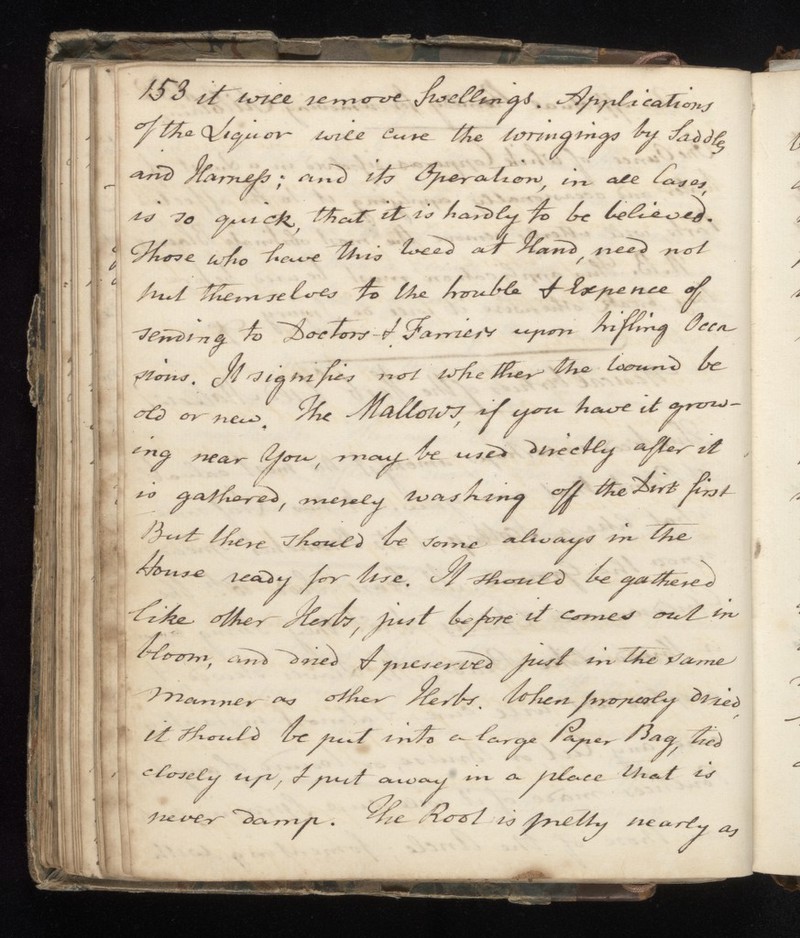 153 it will remove Swellings. Applications
of the Liquor will cure the wringings by Saddles
and Harness; and its Operation, in all Cases,
is so quick, that it is hardly to be believed.
Those who have this Weed at Hand, need not
put themselves to the trouble & Expence of
sending to Doctors & Farriers upon trifling Occa
sions. It signifies not whether the wound be
old or new. The Mallows, if you have it grow-
ing near You, may be used directly after it
is gathered, merely washing off the Dirt first
But there should be some always in the
House ready for Use. It should be gathered
like other Herbs, just before it comes out in
bloom, and dried & preserved just in the same
manner as other Herbs. When properly dried,
it should be put into a large Paper Bag, tied
closely up, & put away in a place that is
never damp. The Root is pretty nearly as